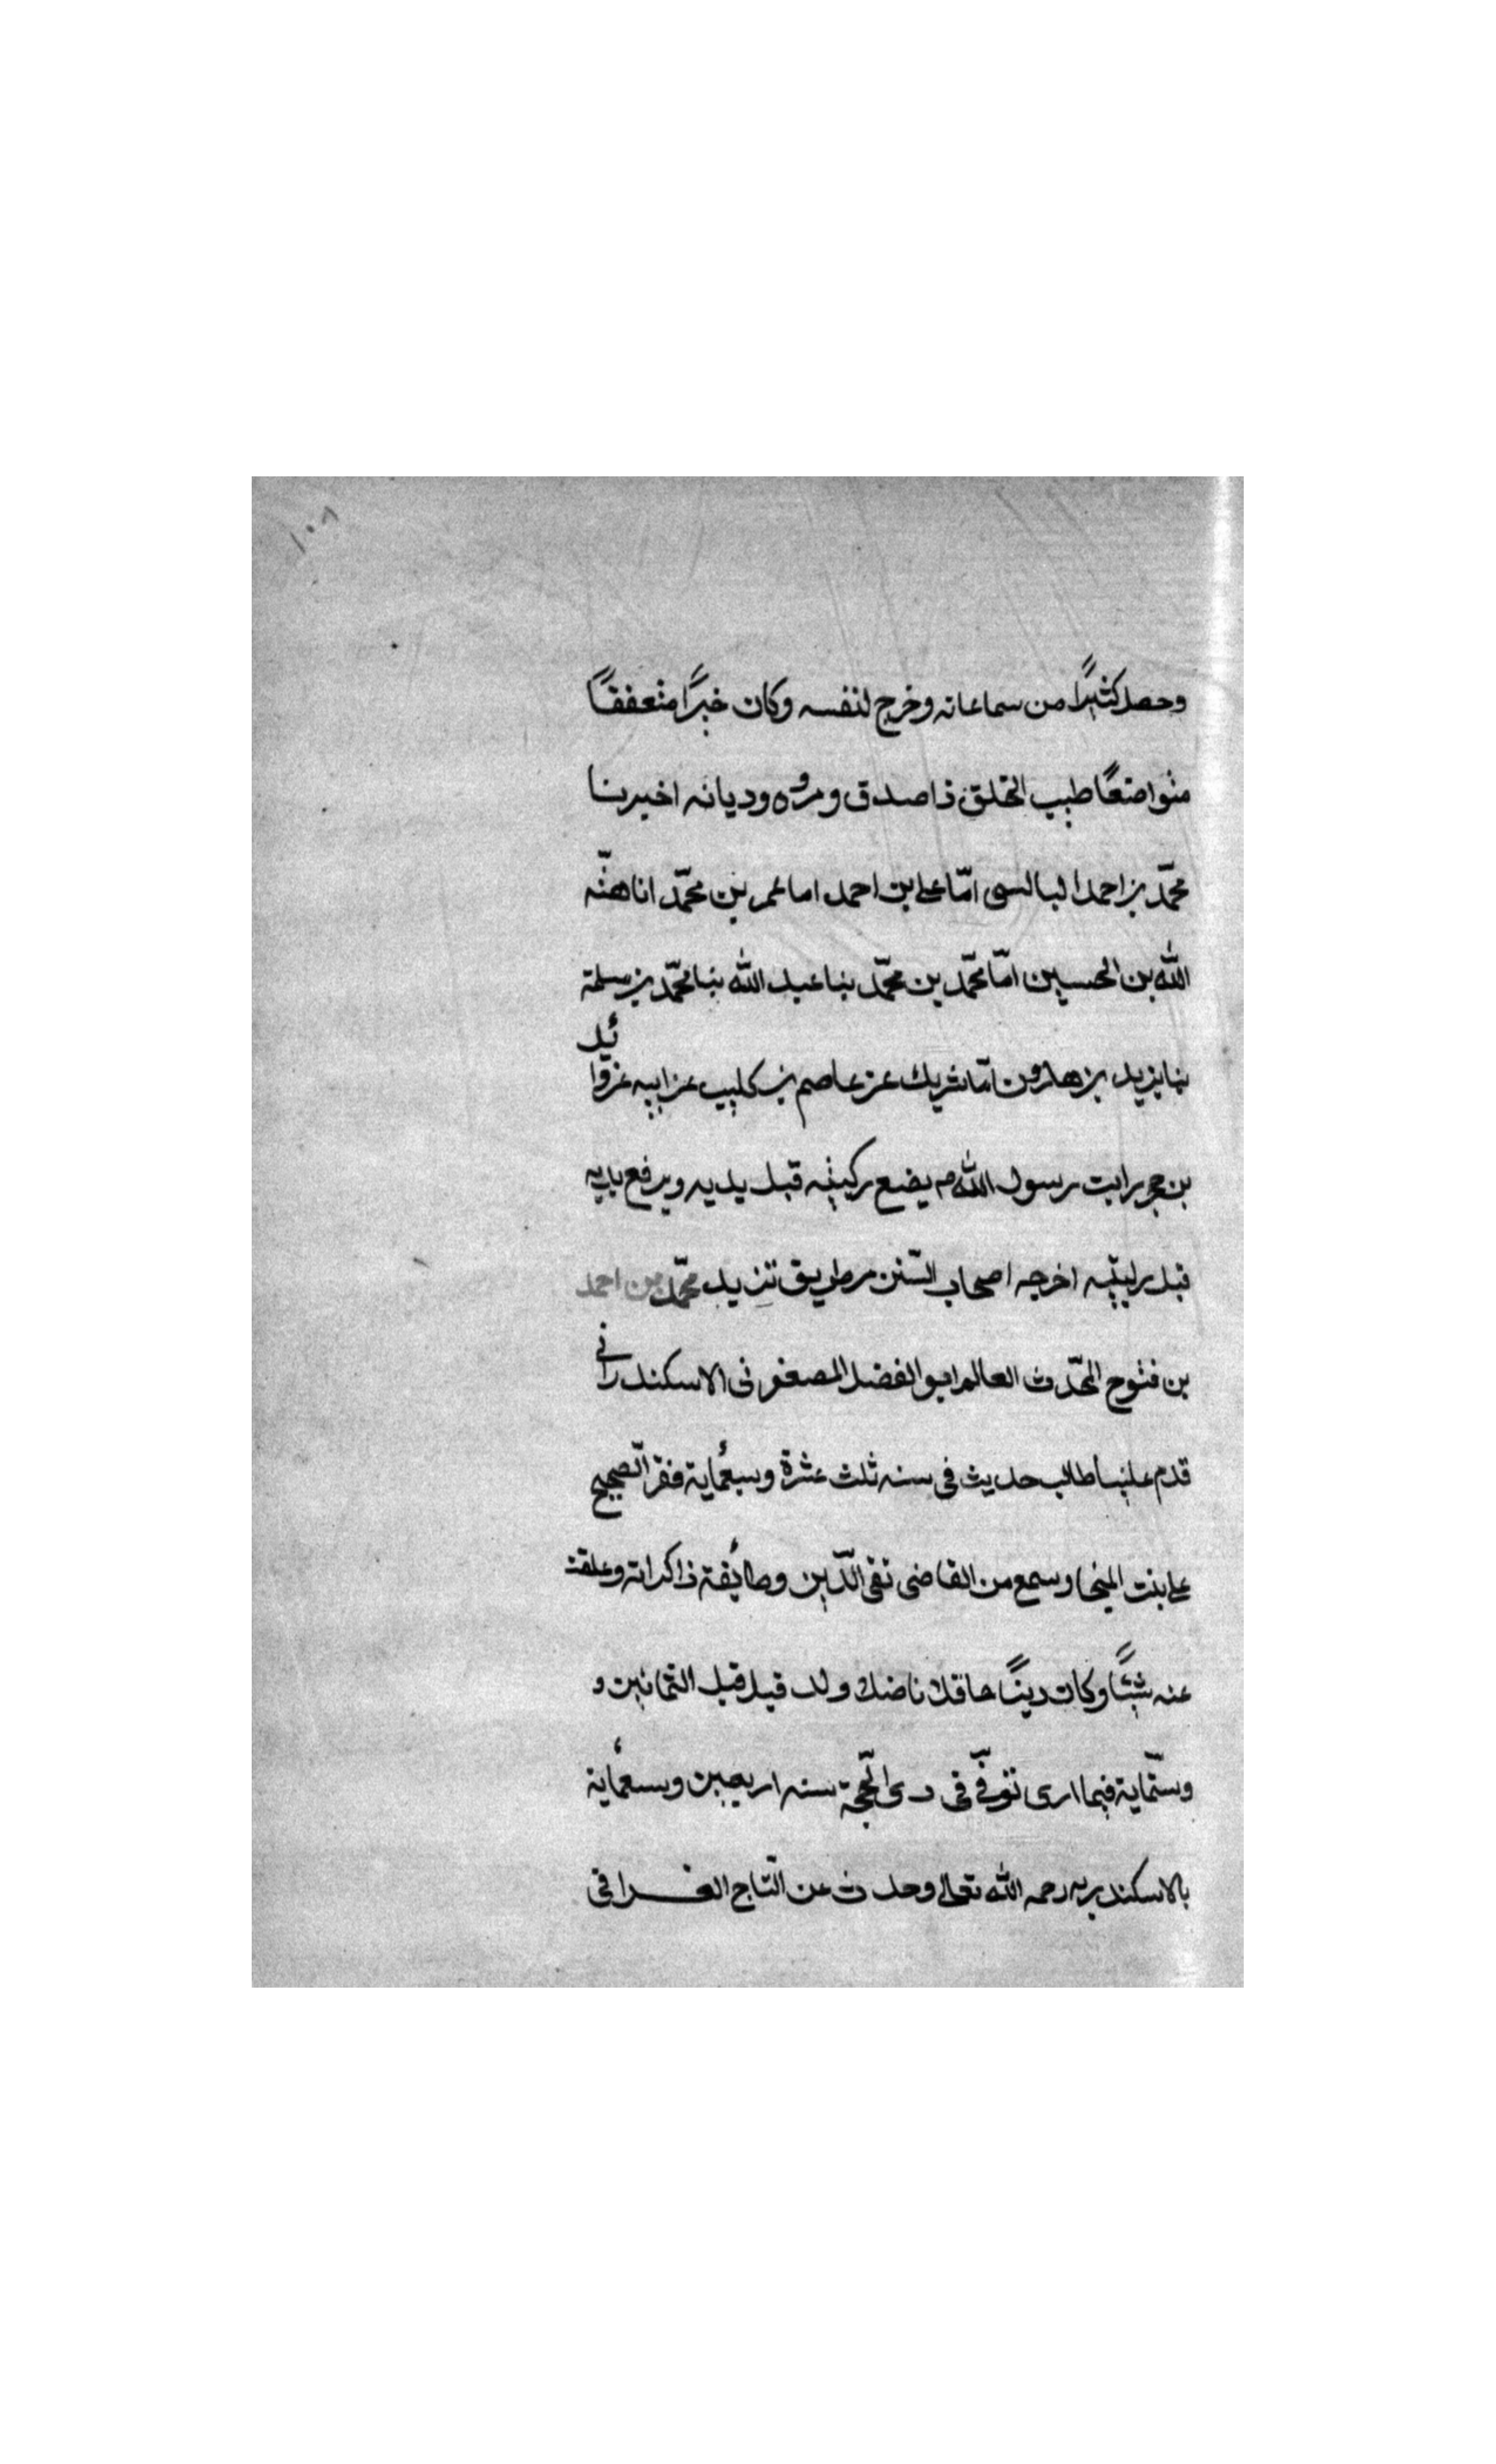 ١٠٨
وحصل كثيرًا من سماعاته وخرج لنفسه وكان خبرًا متعففًا
متواضعًا طيب الخلق ذا صدق ومروه وديانه اخبرنا
محمّد بن احمد البالسى امّا على بن احمد اما عمر بن محمّد انا هبّه
اللّه بن الحسين امّا محمّد بن محمّد بنا عبد اللّه بنا محمّد بن سلمة
بنا يزيد بن هارون امّا شريك عن عاصم بن كليب عن ابيه عن وائل
بن حجر رايت رسول اللّه م يضع ركبتيه قبل يديه ويرفع يديه
قبل ركبتيه اخرجه اصحاب السّنن من طريق يزيد محمّد بن احمد
بن فتوح المحّدث العالم ابو الفضل المصغونى الاسكندرانى
قدم علينا طالب حديث فى سنه ثلث عشرة وسبعماية فقرا الصّحيح
على بنت المنجا وسمع من القاضى تقى الدّين وطائفة ذاكراته وعلقت
عنه شيئًا وكان دينًا عاقلا فاضلا ولد قبل قبل الثمانين و
وستّماية فيما ارى توفّى فى دى الحّجة سنه اربعين وسبعماية
بالاسكندريه رحمه اللّه تعالى وحدث عن التّاج الغرافى